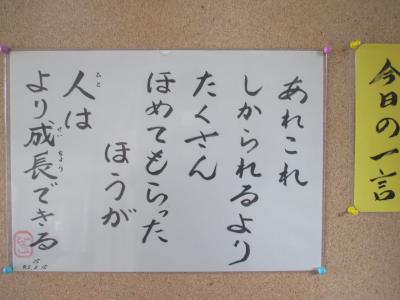 今日の一言
あれこれ
しかられるより
たくさん
ほめてもらった
ほうが
人は
ひと
より成長できる
せいちょう